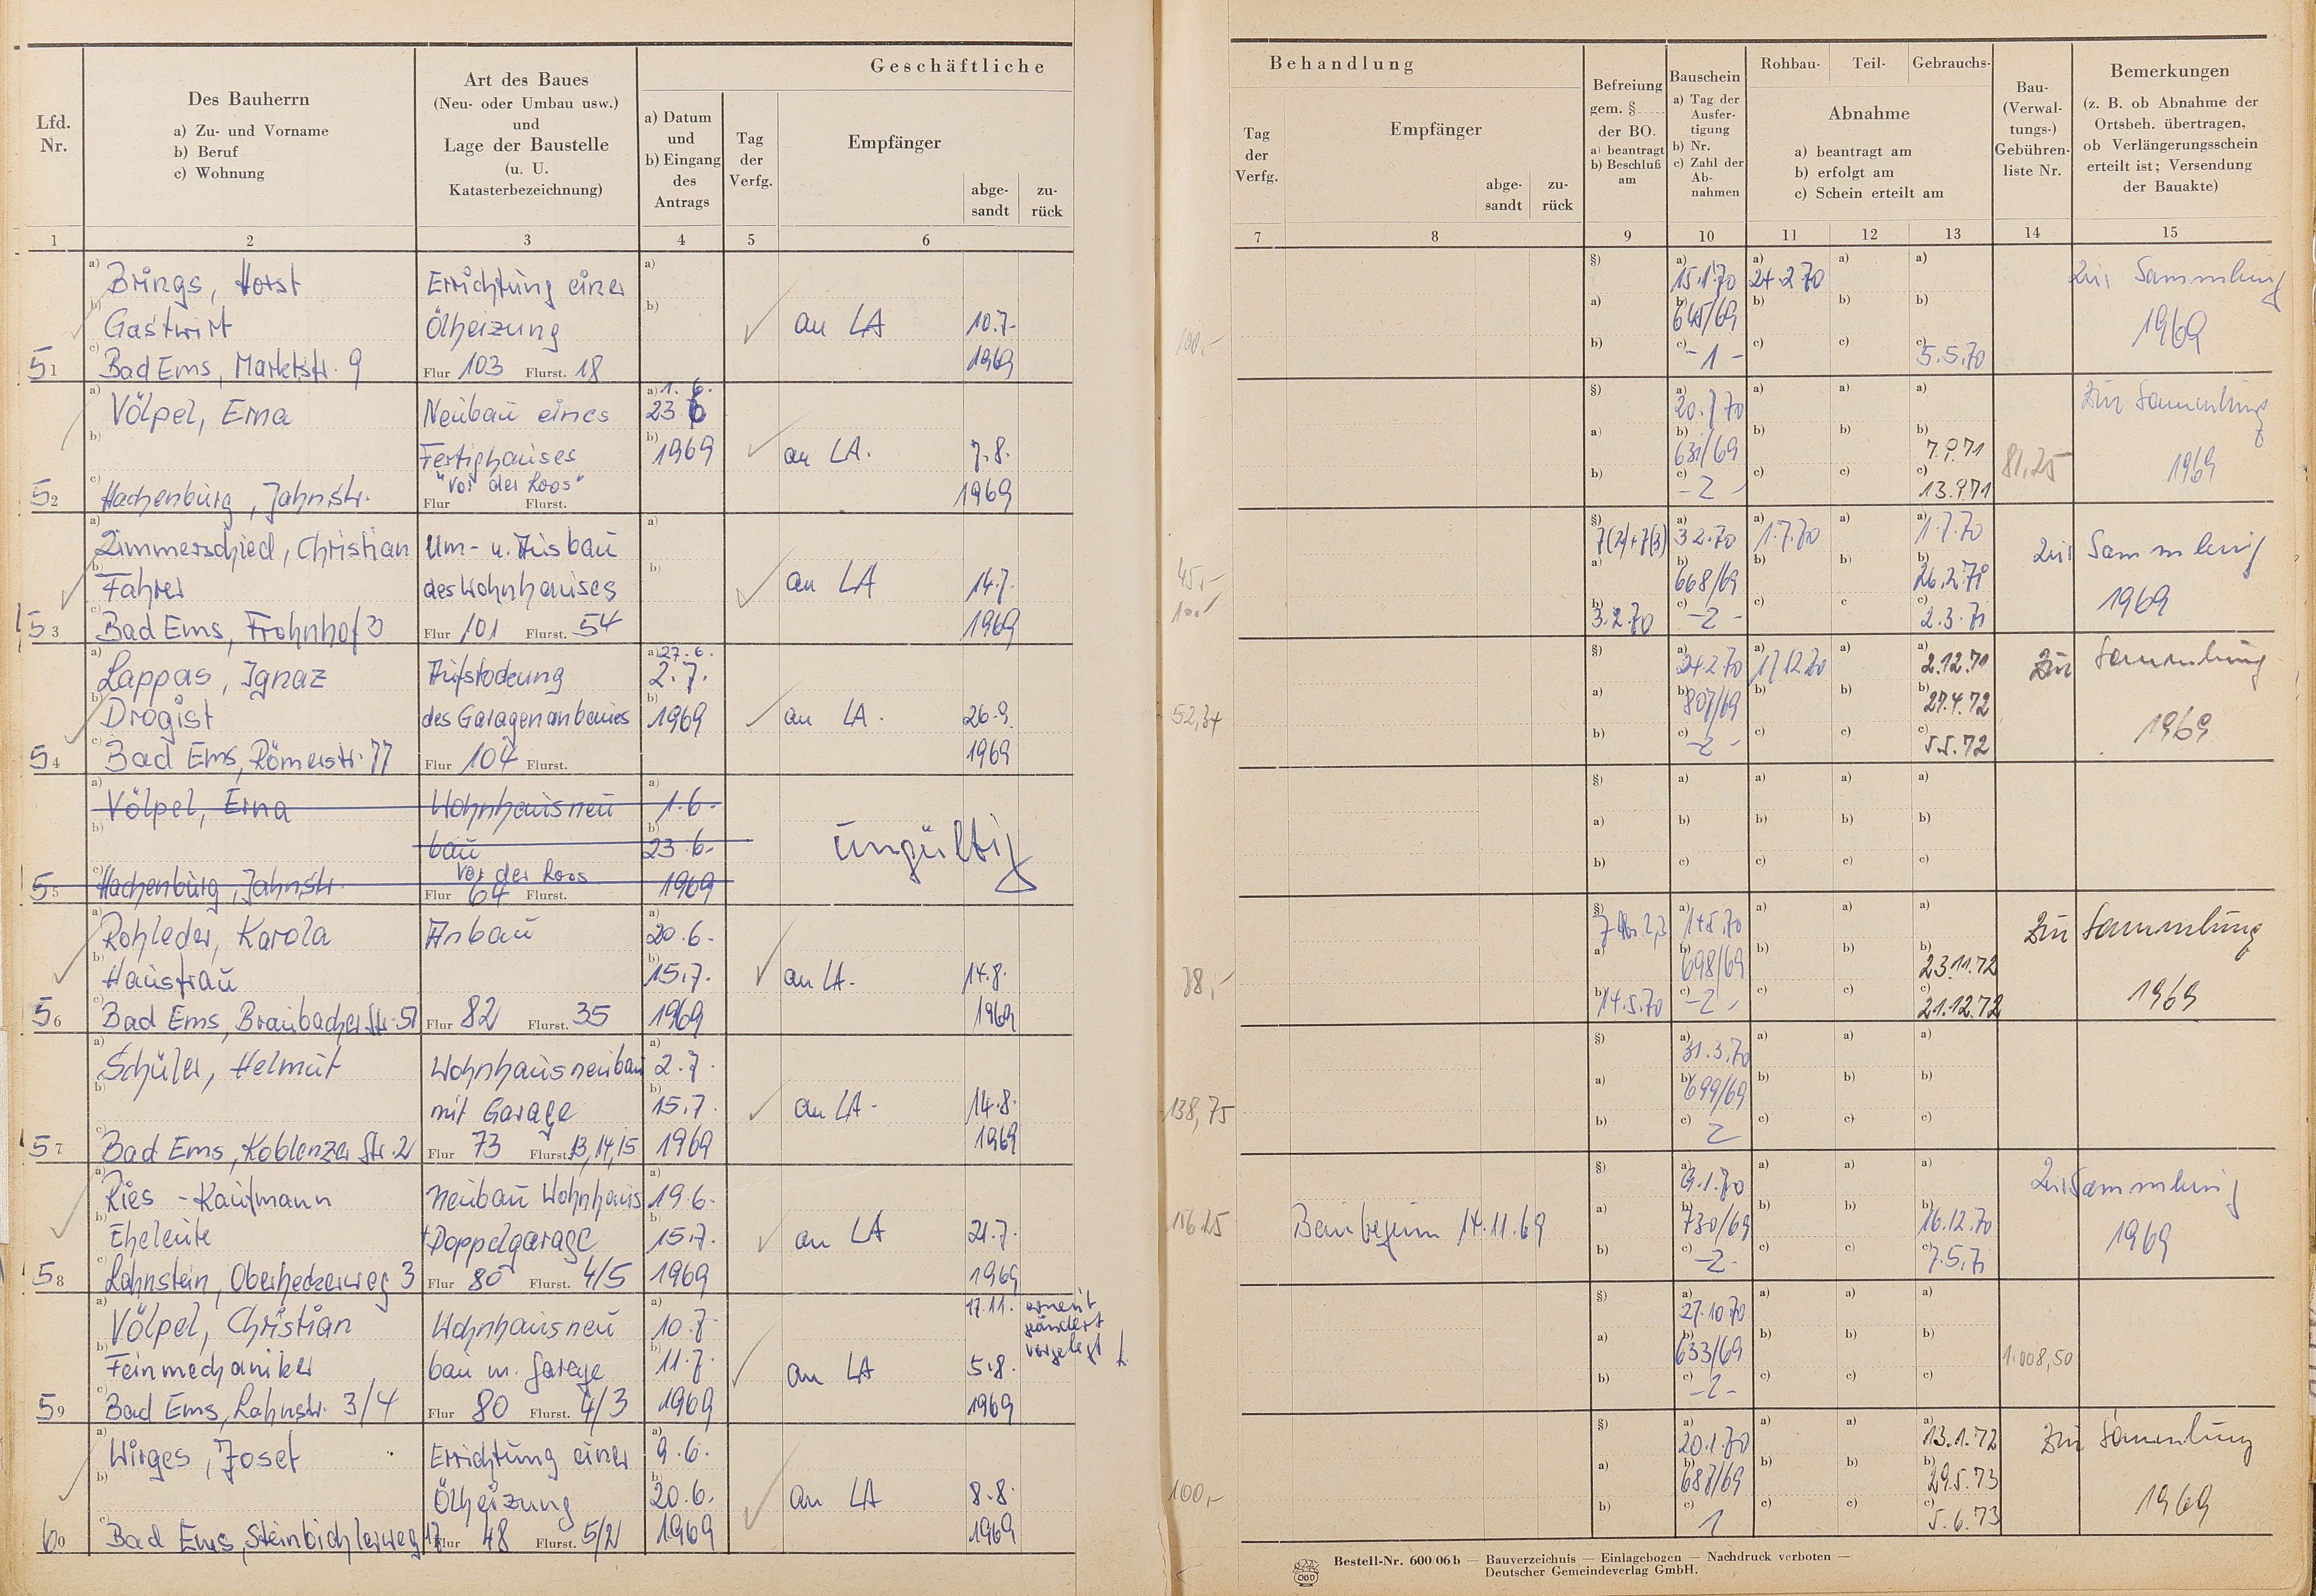 Geschäftliche
Lfd. Nr.
Des Bauherrn
a) Zu- und Vorname
b) Beruf
c) Wohnung
Art des Baues
(Neu- oder Umbau usw.)
und
Lage der Baustelle
(u. U.
Katasterbezeichnung)
a) Datum
und
b) Eingang
des
Antrags
Tag
der
Verfg.
Empfänger
abge-
sandt
zu-
rück
1 2 3 4 5 6
a) Brings, Horst Errichtung einer a)
b) Gastwirt Ölheizung b) an LA 10.7.
51 c) Bad Ems, Marktstr. 9 Flur 103 Flurst. 18 1969
a) Völpel, Erna Neubau eines a) 1. 6. 23 6
b) Fertighauses b) 1969 an LA. 7.8.
"Vor der Loos"
52 c) Hachenburg, Jahnstr. Flur Flurst. 1969
a) Zimmerschied, Christian Um- u. Ausbau a)
b) Fahrer des Wohnhauses b) an LA 14.7.
53 c) Bad Ems, Frohnhof 3 Flur 101 Flurst. 54 1969
a) Lappas, Ignaz Aufstockung a) 27.6. 2.7.
b) Drogist des Garagenanbaues b) 1969 an LA. 26.9.
54 c) Bad Ems, Römerstr. 77 Flur 104 Flurst. 1969
a) Völpel, Erna Wohnhausneu a) 1.6.
b) bau b) 23.6. ungültig
Vor der Loos
55 c) Hachenburg, Jahnstr. Flur 64 Flurst. 1969
a) Rohleder, Karola Anbau a) 20.6.
b) Hausfrau b) 15.7. an LA. 14.8.
56 c) Bad Ems, Braubacher Str. 51 Flur 82 Flurst. 35 1969 1969
a) Schüler, Helmut Wohnhausneubau a) 2.7.
b) mit Garage b) 15.7. an LA. 14.8.
57 c) Bad Ems, Koblenzer Str. 2 Flur 73 Flurst. 13,14,15 1969 1969
a) Ries - Kaufmann Neubau Wohnhaus a) 19.6.
b) Eheleute + Doppelgarage b) 15.7. an LA 21.7.
58 c) Lahnstein, Oberheckerweg 3 Flur 80 Flurst. 4/5 1969 1969
a) Völpel, Christian Wohnhausneu a) 10.7. 17.11. erneut
geändert
vorgelegt
b) Feinmechaniker bau m. Garage b) 11.7. an LA 5.8.
59 c) Bad Ems, Lahnstr. 3/4 Flur 80 Flurst. 4/3 1969 1969
a) Wirges, Josef Errichtung einer a) 9.6.
b) Ölheizung b) 20.6. an LA 8.8.
60 c) Bad Ems, Steinbichlerweg 17 Flur 48 Flurst. 5/2 1969 1969
Behandlung
Tag
der
Verfg.
Empfänger
abge-
sandt
zu-
rück
Befreiung
gem. §
der BO.
a) beantragt
b) Beschluß
am
Bauschein
a) Tag der
Ausfer-
tigung
b) Nr.
c) Zahl der
Ab-
nahmen
Rohbau- Teil- Gebrauchs-
Abnahme
a) beantragt am
b) erfolgt am
c) Schein erteilt am
Bau-
(Verwal-
tungs-)
Gebühren-
liste Nr.
Bemerkungen
(z. B. ob Abnahme der
Ortsbeh. übertragen,
ob Verlängerungsschein
erteilt ist; Versendung
der Bauakte)
7 8 9 10 11 12 13 14 15
§) a) 15.1.70 a) 24.2.70 a) a) Zur Sammlung
a) b) 645/69 b) b) b) 1969
100,- b) c) -1- c) c) c) 5.5.70
§) a) 20.7.70 a) a) a) Zur Sammlung
a) b) 631/69 b) b) b) 7.9.71 81,25 1969
b) c) -2- c) c) c) 13.9.71
§) 7(2)+7(3) a) 3.2.70 a) 1.7.70 a) a) 1.7.70 Zur Sammlung
45,- a) b) 668/69 b) b) b) 26.2.71 1969
100,- b) 3.2.70 c) -2- c) c c) 2.3.71
§) a) 24.2.70 a) 17.12.70 a) a) 2.12.71 Zur Sammlung
52,34 a) b) 807/69 b) b) b) 27.4.72 1969
b) c) -2- c) c) c) 5.5.72
§) a) a) a) a)
a) b) b) b) b)
b) c) c) c) c)
§) 7 Abs 2,3 a) 14.5.70 a) a) a) Zur Sammlung
38,- a) b) 698/69 b) b) b) 23.11.72 1969
b) 14.5.70 c) -2- c) c) c) 21.12.72
§) a) 31.3.70 a) a) a)
138,75 a) b) 699/69 b) b) b)
b) c) 2 c) c) c)
§) a) 9.1.70 a) a) a) Zur Sammlung
156.25 Baubeginn 14.11.69 a) b) 730/69 b) b) b) 16.12.70 1969
b) c) -2- c) c) c) 7.5.71
§) a) 27.10.70 a) a) a)
a) b) 633/69 b) b) b) 1.008,50
b) c) -2- c) c) c)
§) a) 20.1.70 a) a) a) 13.1.72 Zur Sammlung
100,- a) b) 687/69 b) b) b) 29.5.73 1969
b) c) 1 c) c) c) 5.6.73
Bestell-Nr. 600/06 b — Bauverzeichnis — Einlagebogen — Nachdruck verboten —
Deutscher Gemeindeverlag GmbH.